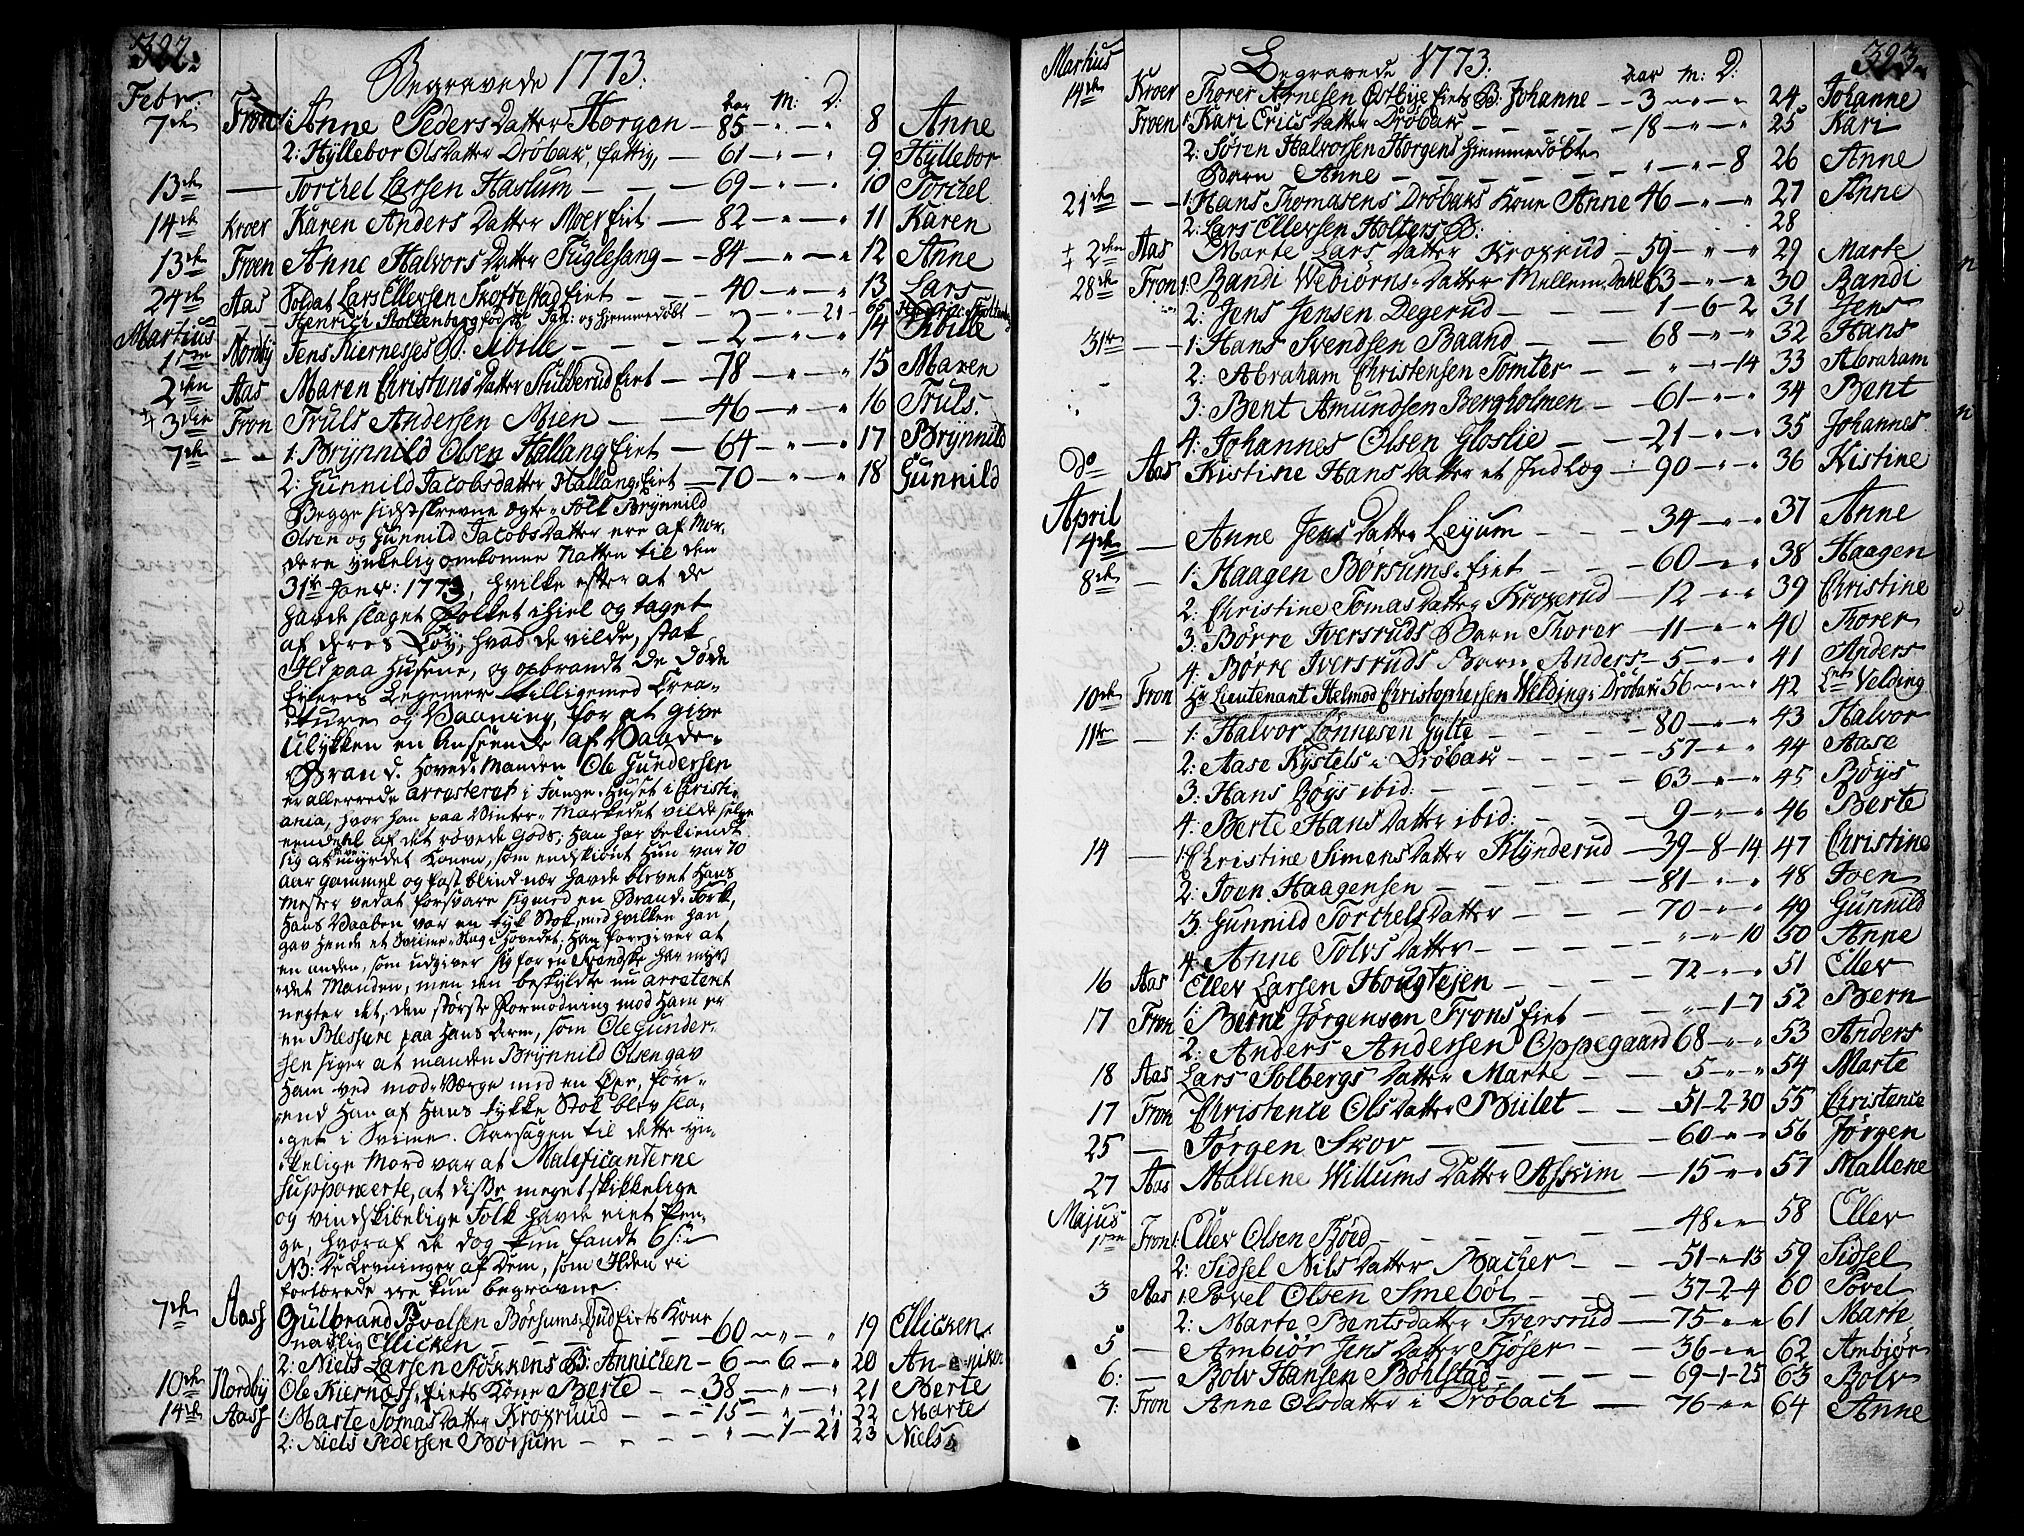 322.
Begravede 1773.
Febr: Aar M: D:
7de Fron 1: Anne Peders Datter Horgen — 85 — " — " 8 Anne
2: Hÿllebor Olsdatter Drøbak, fattig, — 61 — " — " 9 Hÿllebor
13de — Torchel Larsen Haslum — — — 69 — " — " 10 Torchel
14de Kroer Karen Anders Datter Moer Eiet — 82 — " — " 11 Karen
13de Froen Anne Halvors Datter Fuglesang — 84 — " — " 12 Anne
24de Aas Soldat Lars Ellefsen Skoftestad Eiet — — 40 — " — " 13 Lars
Henrich Stoltenberg født Jan: og hjemmedøbt — " — " — 21 65
Martius
1me Nordby Jens Kiernesses B. Sibille — — — 2 — " — " 14 Sibille
2den Aas Maren Christens Datter Skuberud Eiet — 78 — " — " 15 Maren
+ 3die Fron Truls Andersen Mien — — — 46 — " — " 16 Truls.
7de — — 1: Brÿnnild Olsen Hallang Eiet — 64 — " — " 17 Brÿnnild
2: Gunnild Jacobsdatter Hallang, Eiet — 70 — " — " 18 Gunnild
Begge sidstskrevne Ægte-Folk Brÿnnild
Olsen og Gunnild Jacobs Datter ere af Mor-
dere ynkelig omkomne Natten til den
31te Janv: 1773, hvilke efter at de
havde slaget Folket ihiel og taget
af deres Tøy, hvad de vilde, stak
Ild paa Husene, og opbrandt de døde
Eyeres Legemer tilligemed Crea-
ture og Vaaning, for at give
Ulykken en Anseende af Vaade-
Brand. Hoved-Manden Ole Gundersen
er allerrede arresteret i Fange-Huset i Christi-
ania, hvor han paa Vinter-Markedet vilde selge
eendeel af det røvede Gods; Han har bekiendt
sig at have myrdet Konen, som endskiønt Hun var 70
aar gammel og fast blind nær havde blevet Hans
Mester ved at forsvare sig med en Brand-Fork,
Hans Vaaben var en tyk Stok, med hvilken Han
gav Hende et Sviime-Slag i Hovedet; Han foregiver at
en anden, som udgiver sig for en Svendske har myr-
det Manden, men den beskyldte nu arresteret
negter det, den største Formodning mod Ham er
en Blessure paa Hans Arm, som Ole Gunder-
sen siger at manden Brÿnnild Olsen gav
Ham ved mod-Værge med en Øxe, før-
end Han af Hans tykke Stok blev sla-
get i Sviime. Aarsagen til dette yn-
kelige Mord var at Maleficanterne
supponeerte, at disse meget skikkelige
og vindskibelige Folk havde eiet Pen-
ge, hvoraf de dog kun fandt 6 s:
NB: De Levninger af Dem, som Ilden ei
fortærede ere kun begravne.
7de Aass Gulbrand Povelsen Børsums-Rud Eiets Kone
navnlig Ellicken — — — 60 — " — " 19 Ellicken.
2: Niels Larsen Støkkens B: Annicken — 6 — 6 — " 20 Anniken
10de Nordby Ole Kiernæss-Eiets Kone Berte — — 38 — " — " 21 Berte
14de Aass 1: Marte Tomas Datter Kroxruud — — — 15 — " — " 22 Marte
2: Niels Pedersen Børsum — — — " — 1 — 21 23 Niels
323.
Begravede 1773.
Martius Aar M: D:
14de Kroer Thorer Arnesen Østbye Eiets B: Johanne — 3 — " — " 24 Johanne
Froen 1: Kari Erics Datter Drøbak — — — 18 — " — " 25 Kari
2: Søren Halvorsen Horgens hjemmedøbte
Barn Anne — — — " — " — 8 26 Anne
21de — — 1: Hans Thomasens Drøbaks Kone Anne 46 — " — " 27 Anne
2: Lars Ellefsen Holters B: 28
+ 2den Aas Marte Lars Datter Kroxrud — 59 — " — " 29 Marte
28de Fron 1: Randi Webiørns-Datter Mellem Dahl 63 — " — " 30 Randi
2: Jens Jensen Degerud — — — 1 — 6 — 2 31 Jens
31te — — 1: Hans Svendsen Baand — — — 68 — " — " 32 Hans
2: Abraham Christensen Tomter — — " — " — 14 33 Abraham
3: Bent Amundsen Bergholmen — — 61 — " — " 34 Bent
4: Johannes Olsen Gloslie — — — 21 — " — " 35 Johannes
do Aas Kistine Hans Datter et Indlæg — 90 — " — " 36 Kistine
April
4de — Anne Jens Datter Leÿum — — 34 — " — " 37 Anne
8de — 1: Haagen Børsums-Eiet — — — 60 — " — " 38 Haagen
2: Christine Tomas Datter Kroxerud — 12 — " — " 39 Christine
3: Børre Iversruds Barn Thorer — 11 — " — " 40 Thorer
4: Børre Iversruds Barn Anders — 5 — " — " 41 Anders
10de Fron Hr Lieutenant Helmod Christophersen Welding i Drøbak 56 — " — " 42 Lnt Velding
11te — 1: Halvor Lønnesen Gylte — — — 80 — " — " 43 Halvor
2: Aase Kystels i Drøbak — — — 57 — " — " 44 Aase
3: Hans Røys ibid: — — — 63 — " — " 45 Røys
4: Berte Hans Datter ibid: — — — 9 — " — " 46 Berte
14 — 1: Christine Simens Datter Klÿnderud — 39 — 8 — 14 47 Christine
2: Joen Haagensen — — — 81 — " — " 48 Joen
3: Gunnild Torchels Datter — — — 70 — " — " 49 Gunnild
4: Anne Tolvs Datter — — — " — " — 10 50 Anne
16 Aas Ellev Larsen Hougtejen — — — 72 — " — " 51 Ellev
17 Fron 1: Berne Jørgensen Frons Eiet — — " — 1 — 7 52 Bern
2: Anders Andersen Oppegaard 68 — " — " 53 Anders
18 Aas Lars Solbergs Datter Marte — — 5 — " — " 54 Marte
17 Fron Christence Ols Datter Bület — — 51 — 2 — 30 55 Christence
25 — Jørgen Skov — — — 60 — " — " 56 Jørgen
27 Aas Mallene Willums Datter Askim — 15 — " — " 57 Mallene
Majus
1me Fron 1: Ellev Olsen — — — 48 — " — " 58 Ellev
2: Sidsel Nils Datter Bacher — — 51 — " — 13 59 Sidsel
3 Aas 1: Povel Olsen Smebøl — — — 37 — 2 — 4 60 Povel
2: Marte Bentsdatter Iversrud — 75 — " — " 61 Marte
5 — Ambiør Jens Datter Tjøser — — 36 — " — " 62 Ambiør
6: — Rolv Hansen Bøhlstad — — 69 — 1 — 25 63 Rolv
7: Fron Anne Olsdatter i Drøbach — 76 — " — " 64 Anne